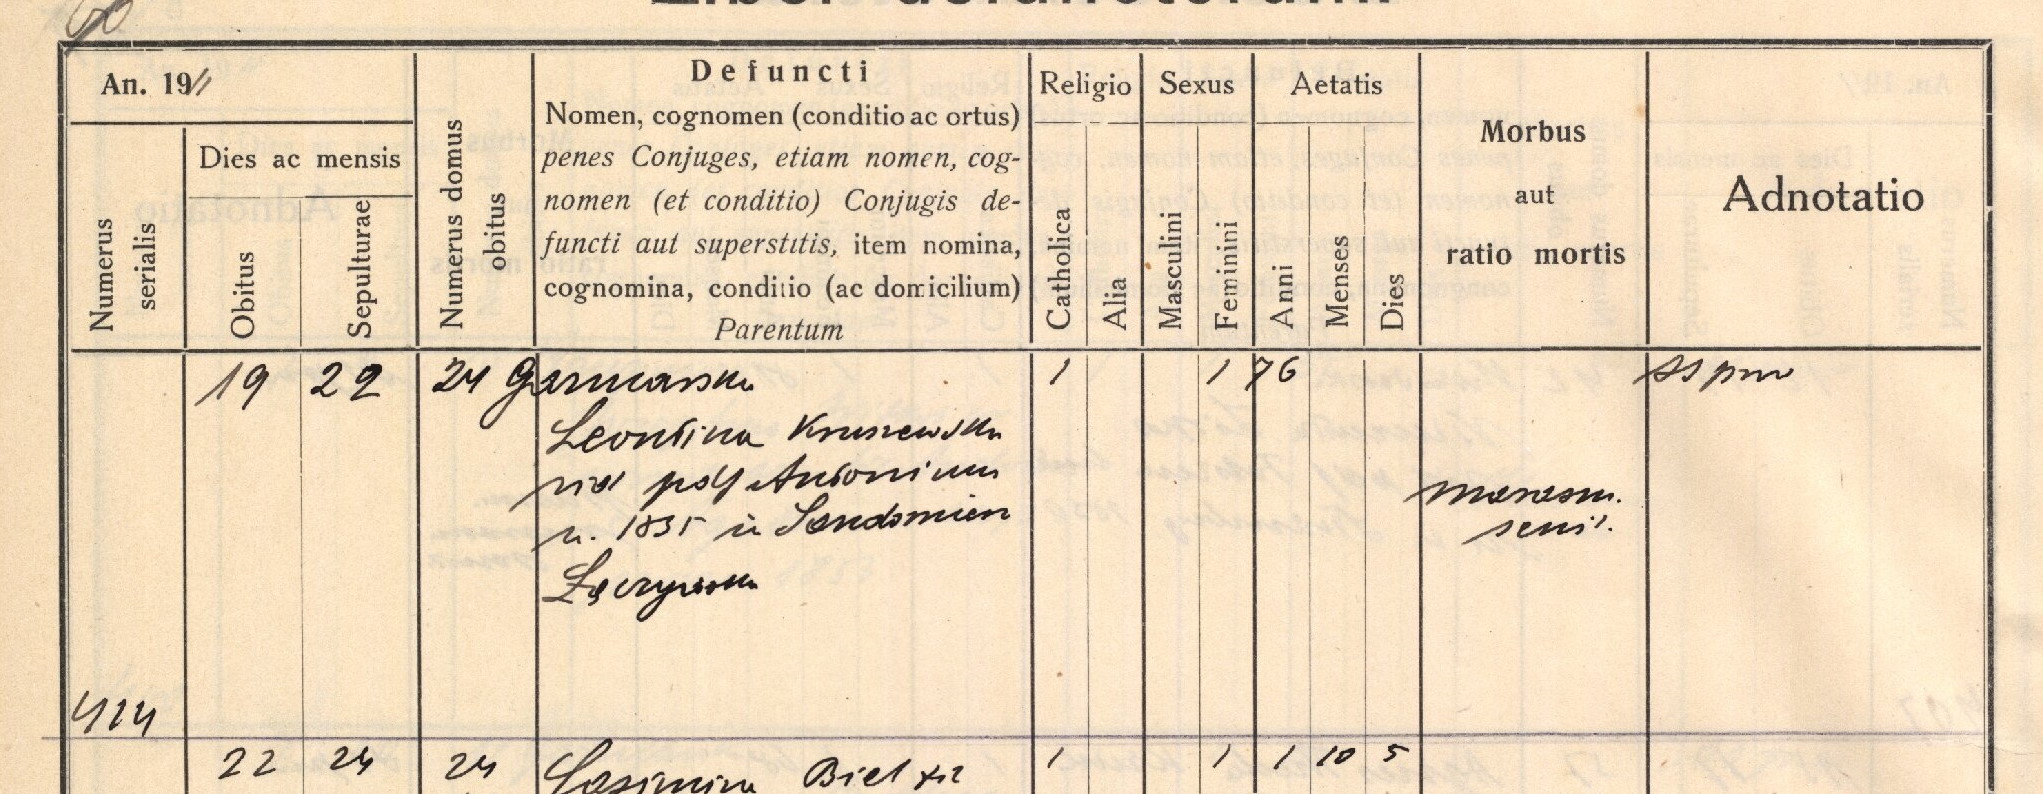 60
An. 1911
Numerus serialis
Dies ac mensis
Obitus
Sepulturae
Numerus domus obitus
Defuncti
Nomen, cognomen (conditio ac ortus)
penes Conjuges, etiam nomen, cog-
nomen (et conditio) Conjugis de-
functi aut superstitis, item nomina,
cognomina, conditio (ac domicilium)
Parentum
Religio
Catholica
Alia
Sexus
Masculini
Feminini
Aetatis
Anni
Menses
Dies
Morbus
aut
ratio mortis
Adnotatio
19 22 24 1 1 76
Leontina Kruszewska
Antonium
n. 1835 in Sandomierz
Łączyńska
marasm.
senil.
414
22 24 24 Casimira 1 1 1 10 5